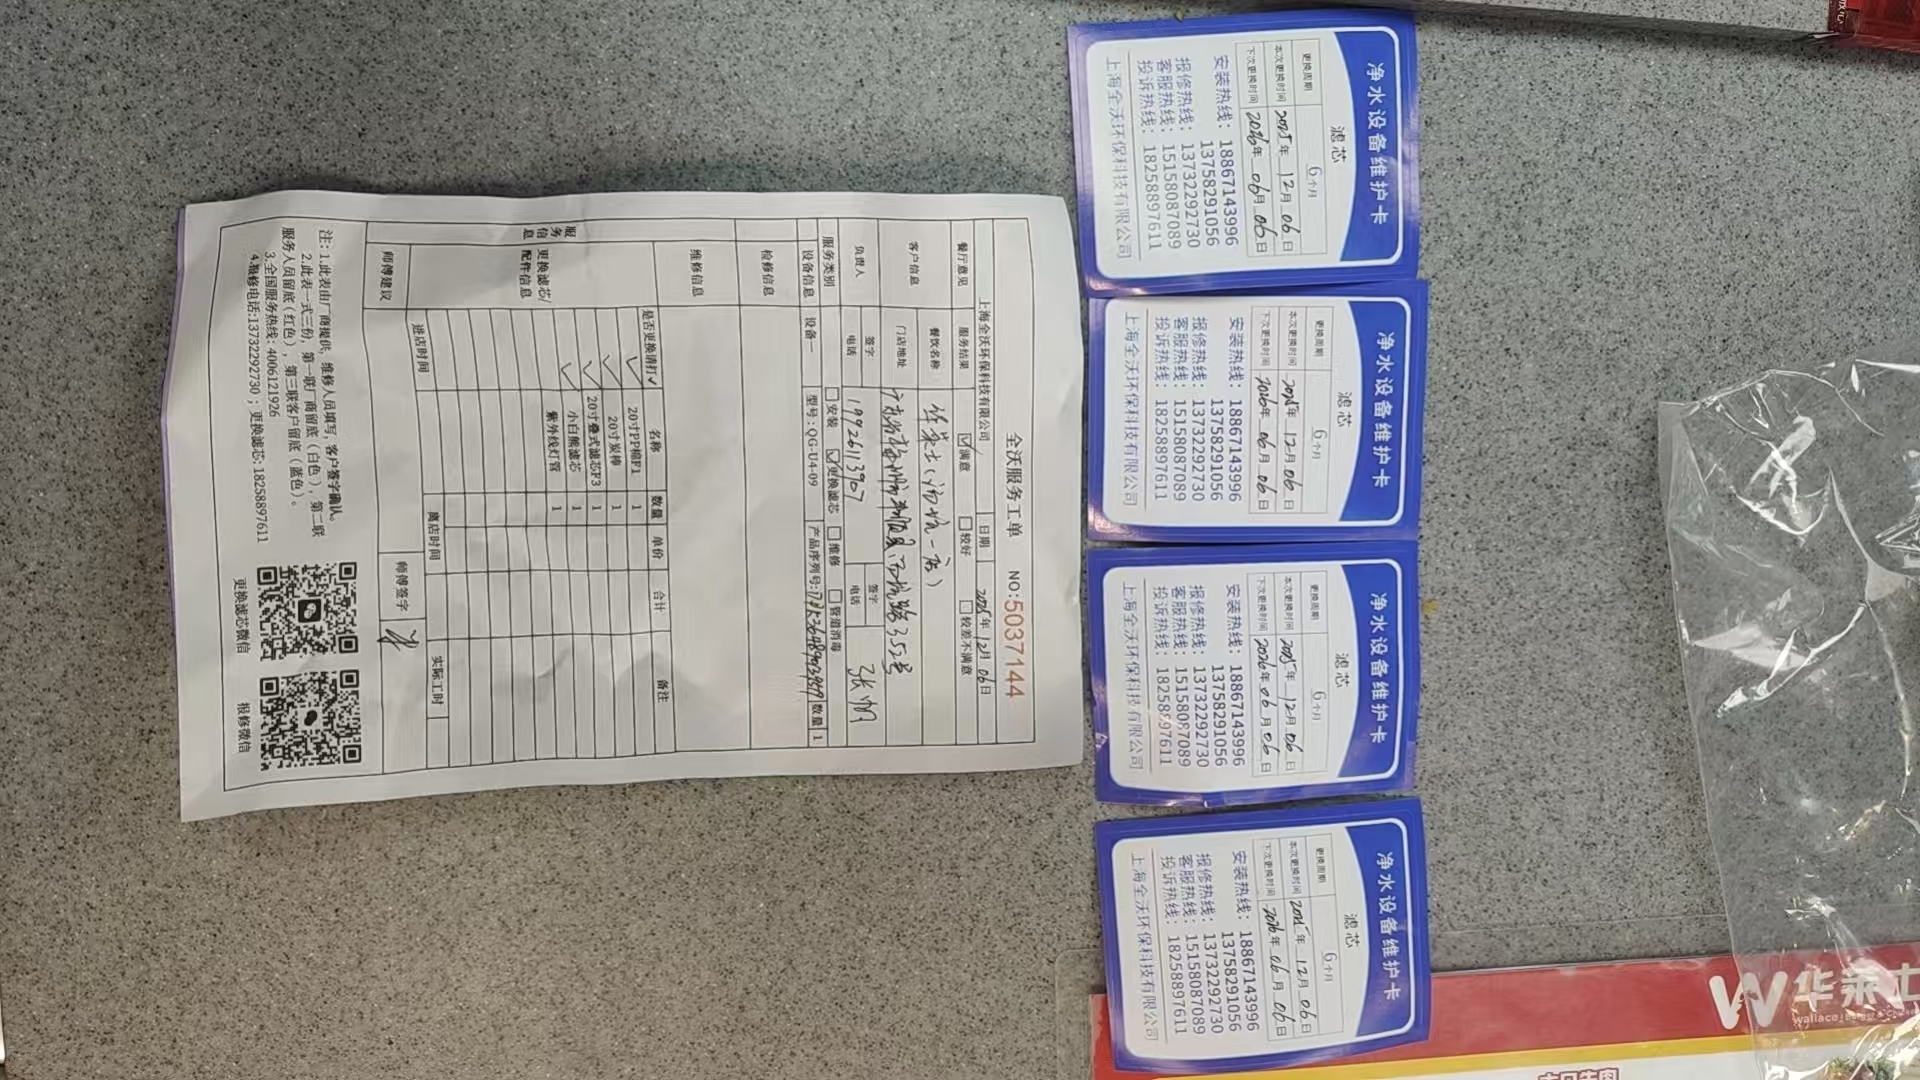 全沃服务工单 NO:5037144
上海全沃环保科技有限公司 日期 2025年12月06日
餐厅意见 服务结果 ☑满意 □较好 □较差不满意
客户信息 餐饮名称 华莱士(汤坑一店)
门店地址
负责人 签字 签字
电话 19926113907 电话
服务类别 □安装 ☑更换滤芯 □维修 □管道消毒
设备信息 设备一 型号:QG-U4-09 产品序列号: 数量 1
检修信息
维修信息
服务信息
更换滤芯/配件信息
是否更换请打✓ 名称 数量 单价 合计 备注
✓ 20寸PP棉F1 1
✓ 20寸炭棒 1
✓ 20寸叠式滤芯F3 1
✓ 小白熊滤芯 1
紫外线灯管 1
进店时间 离店时间 实际工时
师傅建议 师傅签字
注: 1.此表由厂商提供, 维修人员填写, 客户签字确认。
2.此表一式三份, 第一联厂商留底(白色), 第二联
服务人员留底(红色), 第三联客户留底(蓝色)。
3.全国服务热线: 4006121926
4.报修电话:13732292730; 更换滤芯:18258897611
更换滤芯微信
报修微信
净水设备维护卡
滤芯
更换周期 6个月
本次更换时间 2025年12月06日
下次更换时间 2026年06月06日
安装热线: 18867143996
13758291056
报修热线: 13732292730
客服热线: 15158087089
投诉热线: 18258897611
上海全沃环保科技有限公司
净水设备维护卡
滤芯
更换周期 6个月
本次更换时间 2025年12月06日
下次更换时间 2026年06月06日
安装热线: 18867143996
13758291056
报修热线: 13732292730
客服热线: 15158087089
投诉热线: 18258897611
上海全沃环保科技有限公司
净水设备维护卡
滤芯
更换周期 6个月
本次更换时间 2025年12月06日
下次更换时间 2026年06月06日
安装热线: 18867143996
13758291056
报修热线: 13732292730
客服热线: 15158087089
投诉热线: 18258897611
上海全沃环保科技有限公司
净水设备维护卡
滤芯
更换周期 6个月
本次更换时间 2025年12月06日
下次更换时间 2026年06月06日
安装热线: 18867143996
13758291056
报修热线: 13732292730
客服热线: 15158087089
投诉热线: 18258897611
上海全沃环保科技有限公司
华莱士